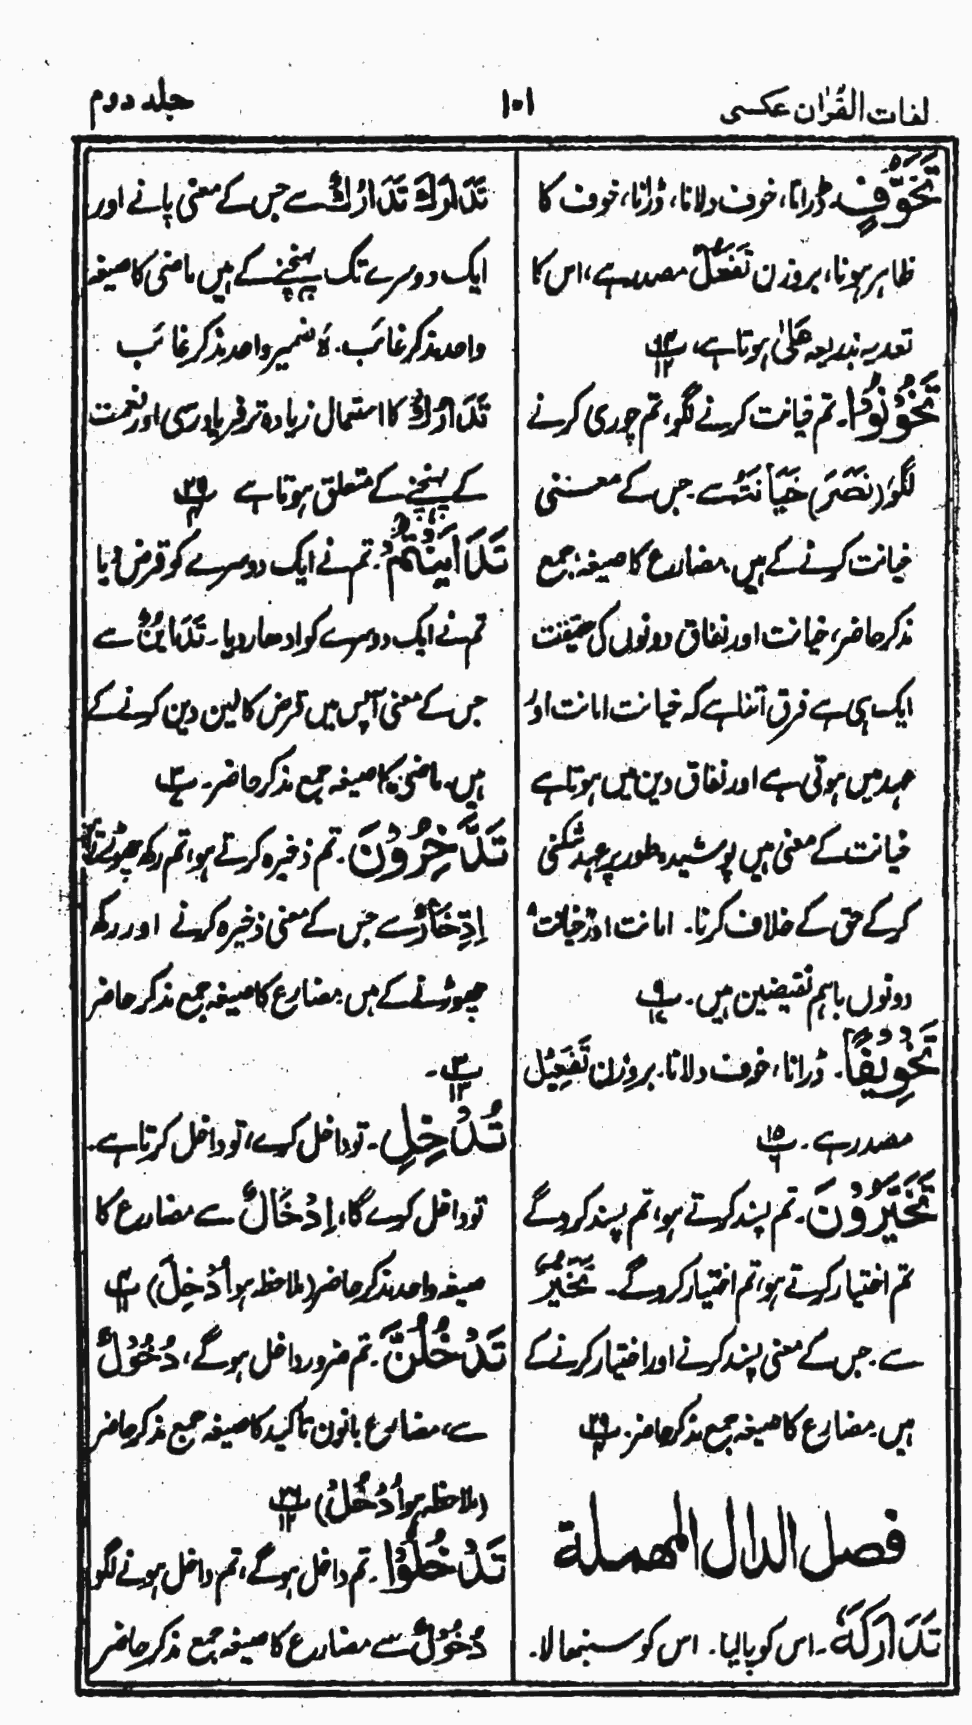 لغات القرآن عکسی
۱۰۱
جلد دوم
تَخَوُّفٍ۔ ڈرانا، خوف دلانا، ڈرنا، خوف کا
ظاہر ہونا، بروزن تَفَعُّلٌ مصدر ہے، اس کا
تعدیہ بذریعہ عَلیٰ ہوتا ہے، پ۱۴ ۱۲
تَخُوْنُوْا۔ تم خیانت کرنے لگو، تم چوری کرنے
لگو، (نَصَرَ) خِیَانَۃٌ سے جس کے معنی
خیانت کرنے کے ہیں، مضارع کا صیغہ جمع
مذکر حاضر، خیانت اور نفاق دونوں کی حقیقت
ایک ہی ہے فرق اتنا ہے کہ خیانت امانت اور
عہد میں ہوتی ہے اور نفاق دین میں ہوتا ہے
خیانت کے معنی ہیں پوشیدہ طور پر عہد شکنی
کر کے حق کے خلاف کرنا۔ امانت اور خیانت
دونوں باہم نقیضین ہیں۔ پ۹ ۱۷
تَخْوِیْفًا۔ ڈرانا، خوف دلانا۔ بروزن تَفْعِیْل
مصدر ہے۔ پ۱۵ ۶
تَخَیَّرُوْنَ۔ تم پسند کرتے ہو، تم پسند کرو گے
تم اختیار کرتے ہو، تم اختیار کرو گے۔ تَخَیُّرٌ
سے۔ جس کے معنی پسند کرنے اور اختیار کرنے کے
ہیں مضارع کا صیغہ جمع مذکر حاضر۔ پ۲۹
فصل الدال المهملة
تَدَارَکَہٗ۔ اس کو پالیا۔ اس کو سنبھالا۔
تَدَارَکَ تَدَارُکٌ سے جس کے معنی پانے اور
ایک دوسرے تک پہنچنے کے ہیں ماضی کا صیغہ
واحد مذکر غائب۔ ہٗ ضمیر واحد مذکر غائب
تَدَارُکٌ کا استعمال زیادہ تر فریاد رسی اور نعمت
کے پہنچنے کے متعلق ہوتا ہے پ۲۹ ۴
تَدَایَنْتُمْ۔ تم نے ایک دوسرے کو قرض دیا
تم نے ایک دوسرے کو ادھار دیا۔ تَدَایُنٌ سے
جس کے معنی آپس میں قرض کا لین دین کرنے کے
ہیں۔ ماضی کا صیغہ جمع مذکر حاضر۔ پ۳
تَدَّخِرُوْنَ۔ تم ذخیرہ کرتے ہو، تم رکھ چھوڑتے ہو
اِدِّخَارٌ سے جس کے معنی ذخیرہ کرنے اور رکھ
چھوڑنے کے ہیں مضارع کا صیغہ جمع مذکر حاضر
پ۳ ۱۳۔
تُدْخِلِ۔ تو داخل کرے، تو داخل کرتا ہے۔
تو داخل کرے گا، اِدْخَالٌ سے مضارع کا
صیغہ واحد مذکر حاضر (ملاحظہ ہو اُدْخِلَ) پ۴ ۱۱
تَدْخُلُنَّ۔ تم ضرور داخل ہوگے، دُخُوْلٌ
سے، مضارع بانون تاکید کا صیغہ جمع مذکر حاضر
(ملاحظہ ہو اُدْخُلْ) پ۲۶ ۱۲
تَدْخُلُوْا۔ تم داخل ہوگے، تم داخل ہونے لگو
دُخُوْلٌ سے مضارع کا صیغہ جمع مذکر حاضر